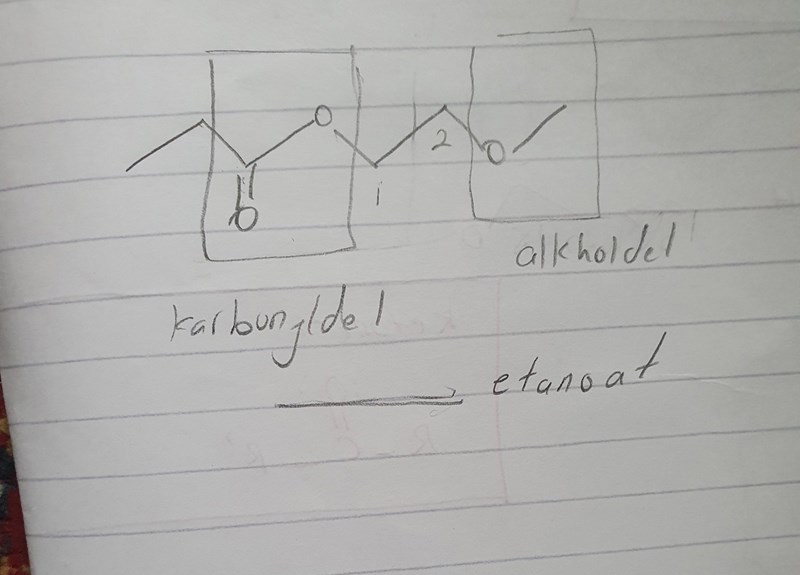 O
2
O
1
O
alkholdel
karbunyldel
etanoat